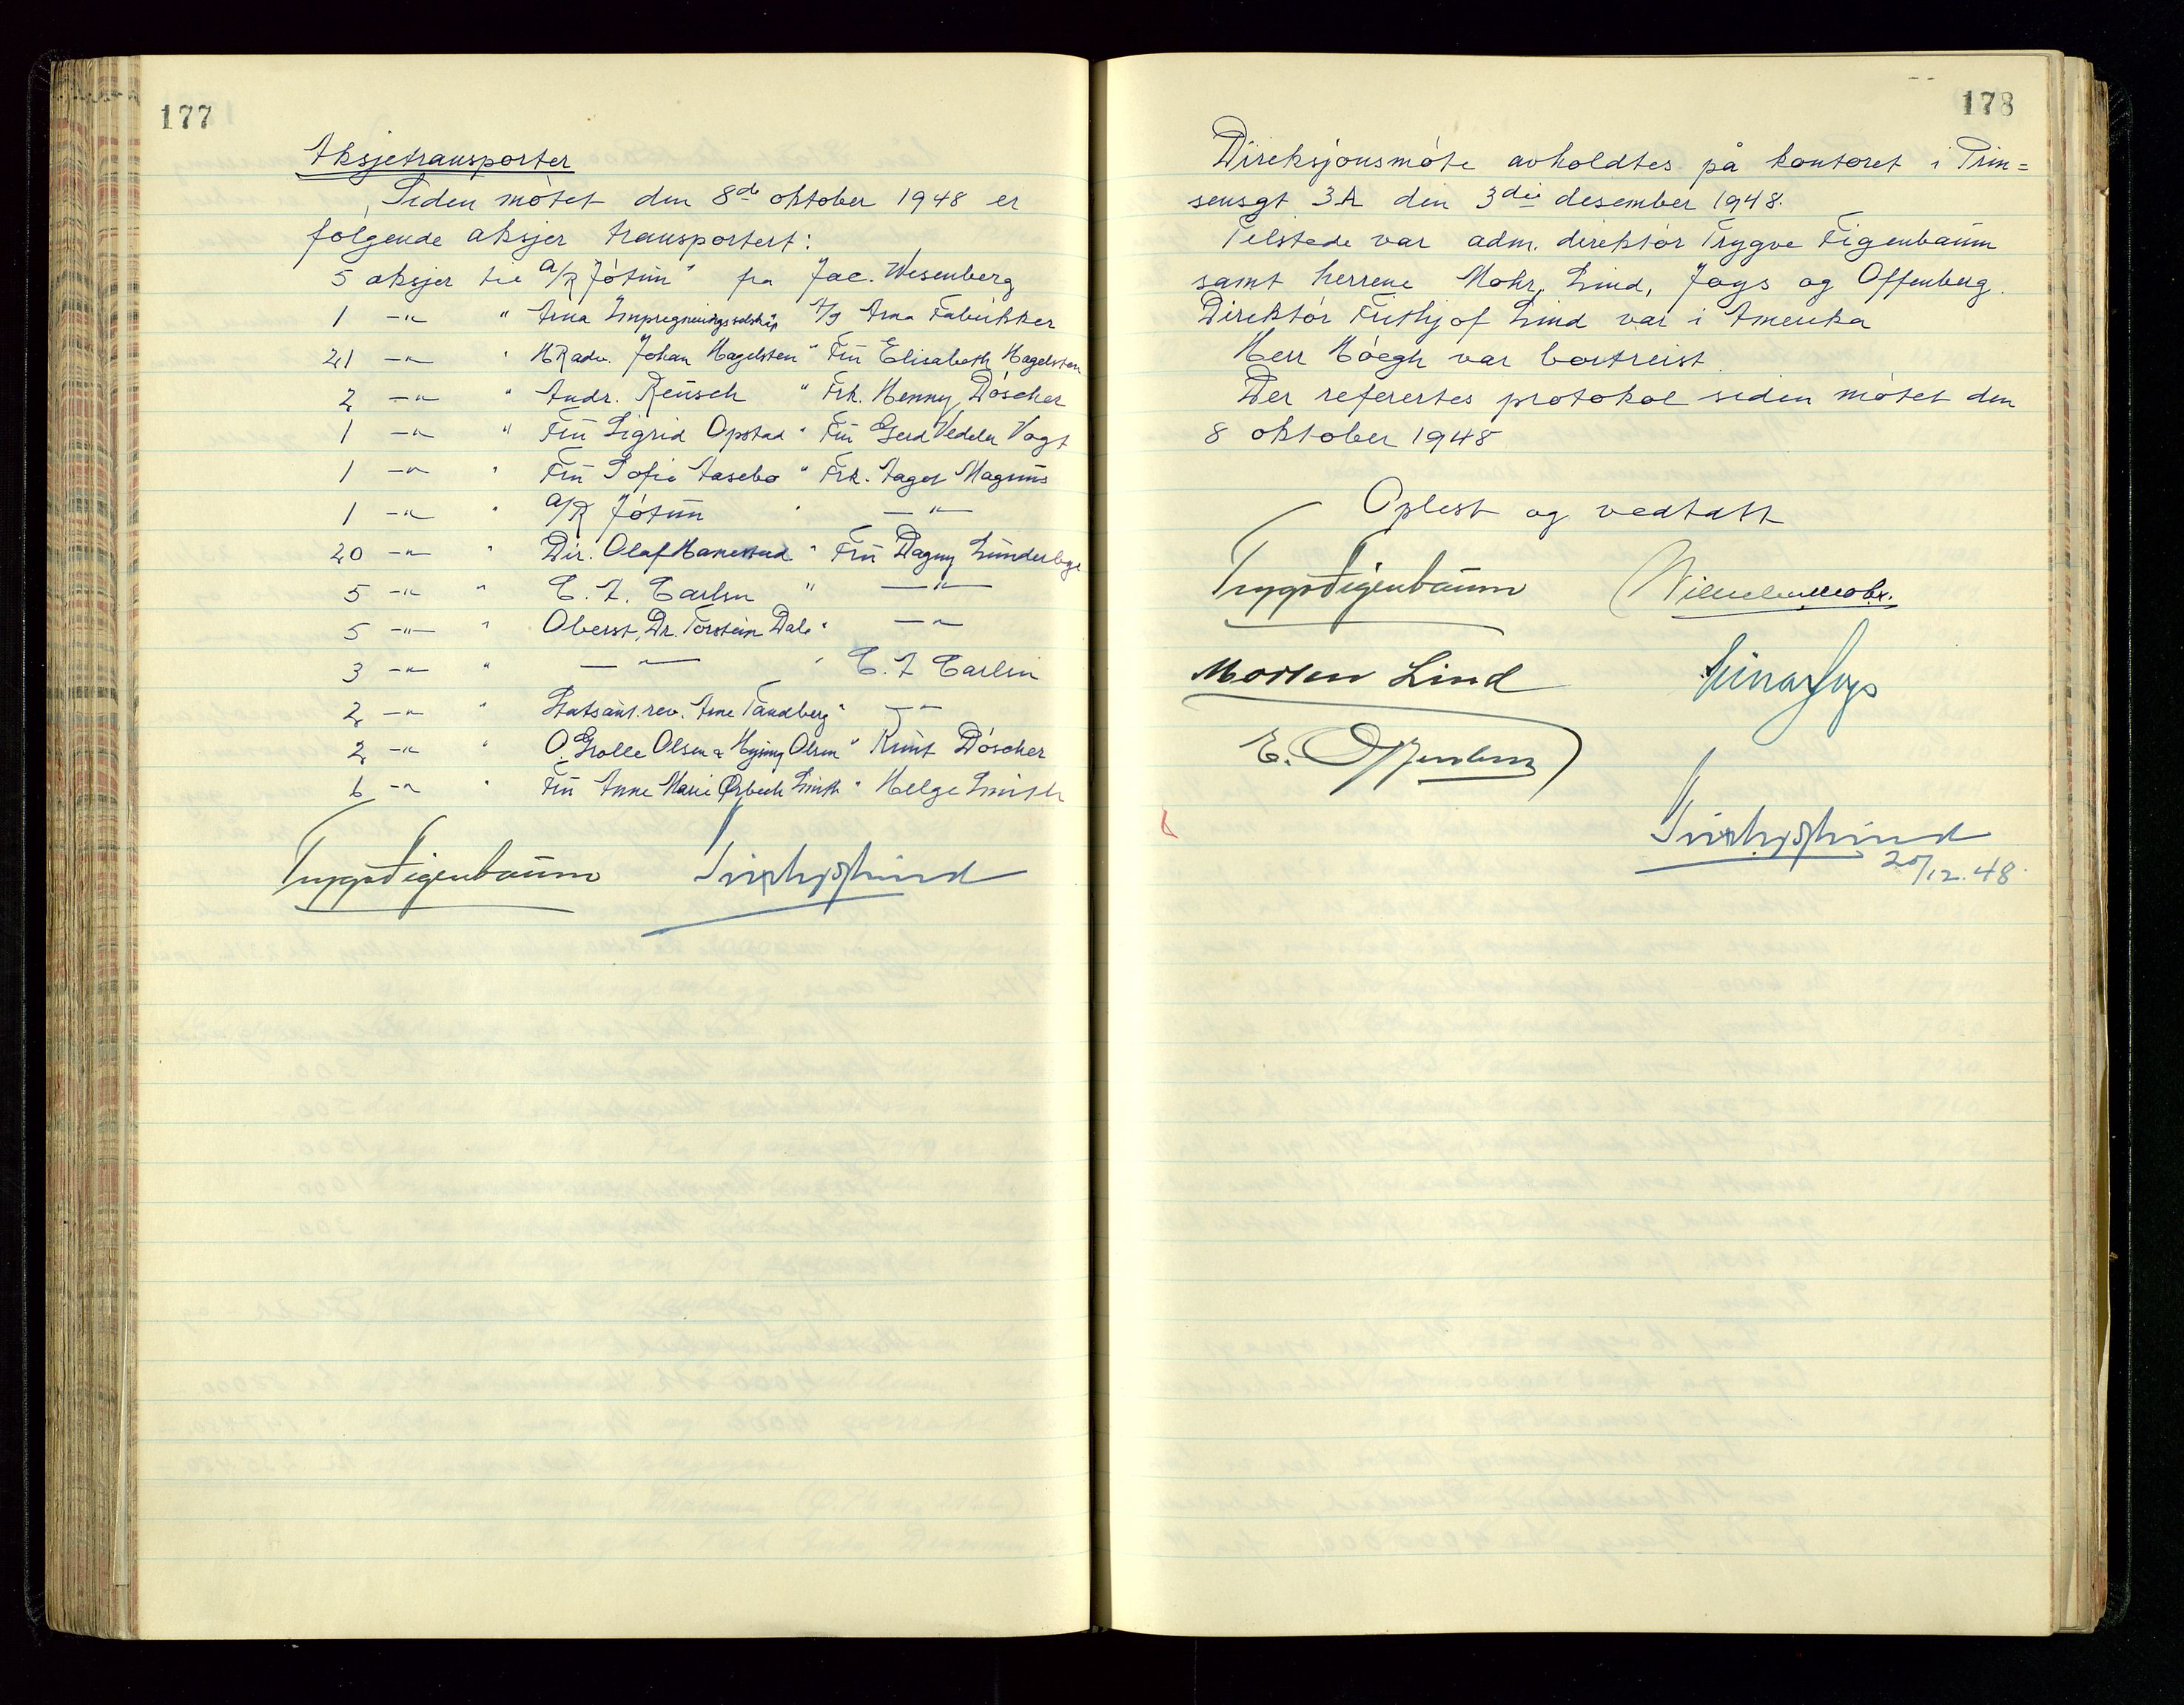 177
Aksjetransporter
Siden møtet den 8de oktober 1948 er
følgende aksjer transportert:
5 aksjer til A/R "Jótun" fra Jac. Wesenberg
1 -"- " Arna Impregneringsselskap A/S Arna Fabrikker
21 -"- " HRadv. Johan Hagelsten " Frú Elisabeth Hagelsten
2 -"- " Andr. Reúsch " Frk. Henny Dóscher
1 -"- " Frú Sigrid Opstad " Frú Gerd Vedeler Vogt
1 -"- " Frú Sofie Aasebø " Frk. Aagot Magnús
1 -"- " A/R Jótun " -"-
20 -"- " Dir. Olaf Hanestad " Frú Dagny Lúnderbye
5 -"- " C. J. Carlsen " -"-
5 -"- " Oberst, Dr. Torstein Dale " -"-
3 -"- " -"- " C. J Carlsen
2 -"- " Statsaut. rev. Arne Tandberg " -"-
2 -"- " O. Grolle Olsen & Hysing Olsen " Knút Dóscher
6 -"- " Frú Anne Marie Ørbech Smith " Helge Smith
Trygve Figenbaúm Frithjof Lind
178
Direksjonsmóte avholdtes på kontoret i Prin=
sensgt 3A den 3die desember 1948.
Tilstede var adm. direktór Trygve Figenbaúm
samt herrene Mohr, Lind, Joys og Offenberg.
Direktór Frithjof Lind var i Amerika
Herr Hóegh var bortreist.
Der refertes protokol siden mótet den
8 oktober 1948
Oplest og vedtatt
Trygve Figenbaúm Wilhelm Mohr.
Morten Lind Einar Joys
E. Offenberg
Frithjof Lind
20/12.48.